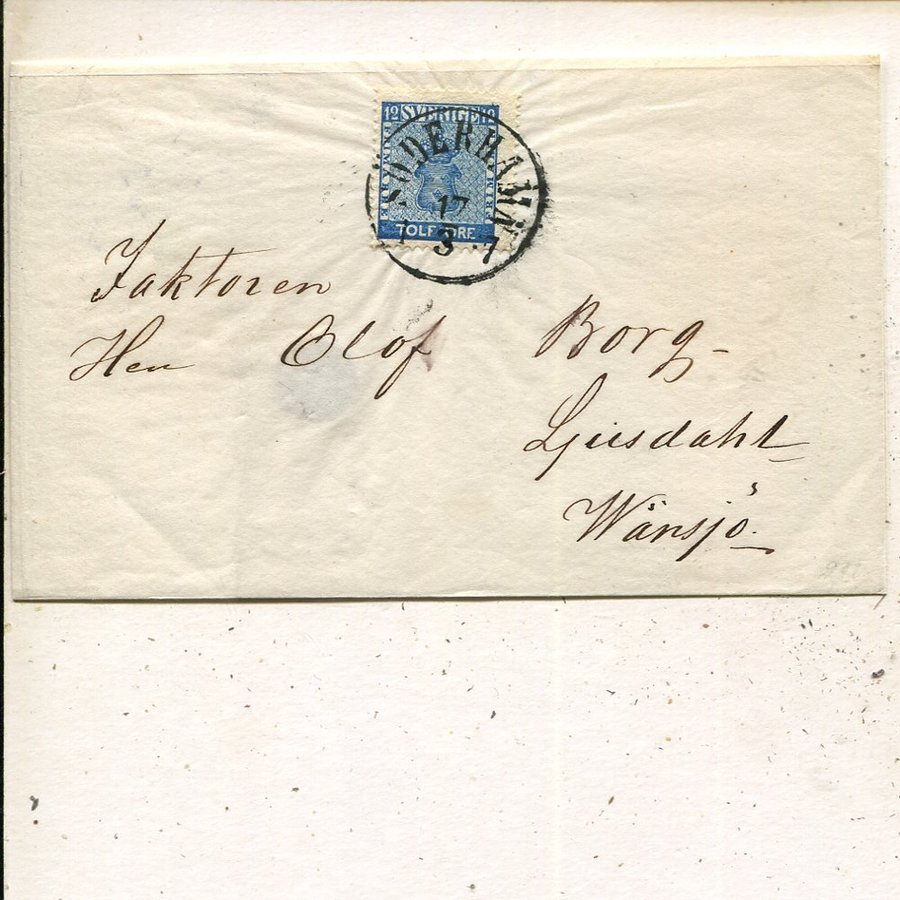 12 SVERIGE 12
SÖDERHAMN
17
3
TOLF ÖRE
Faktoren
Herr Olof Borg
Ljusdahl
Wänsjö